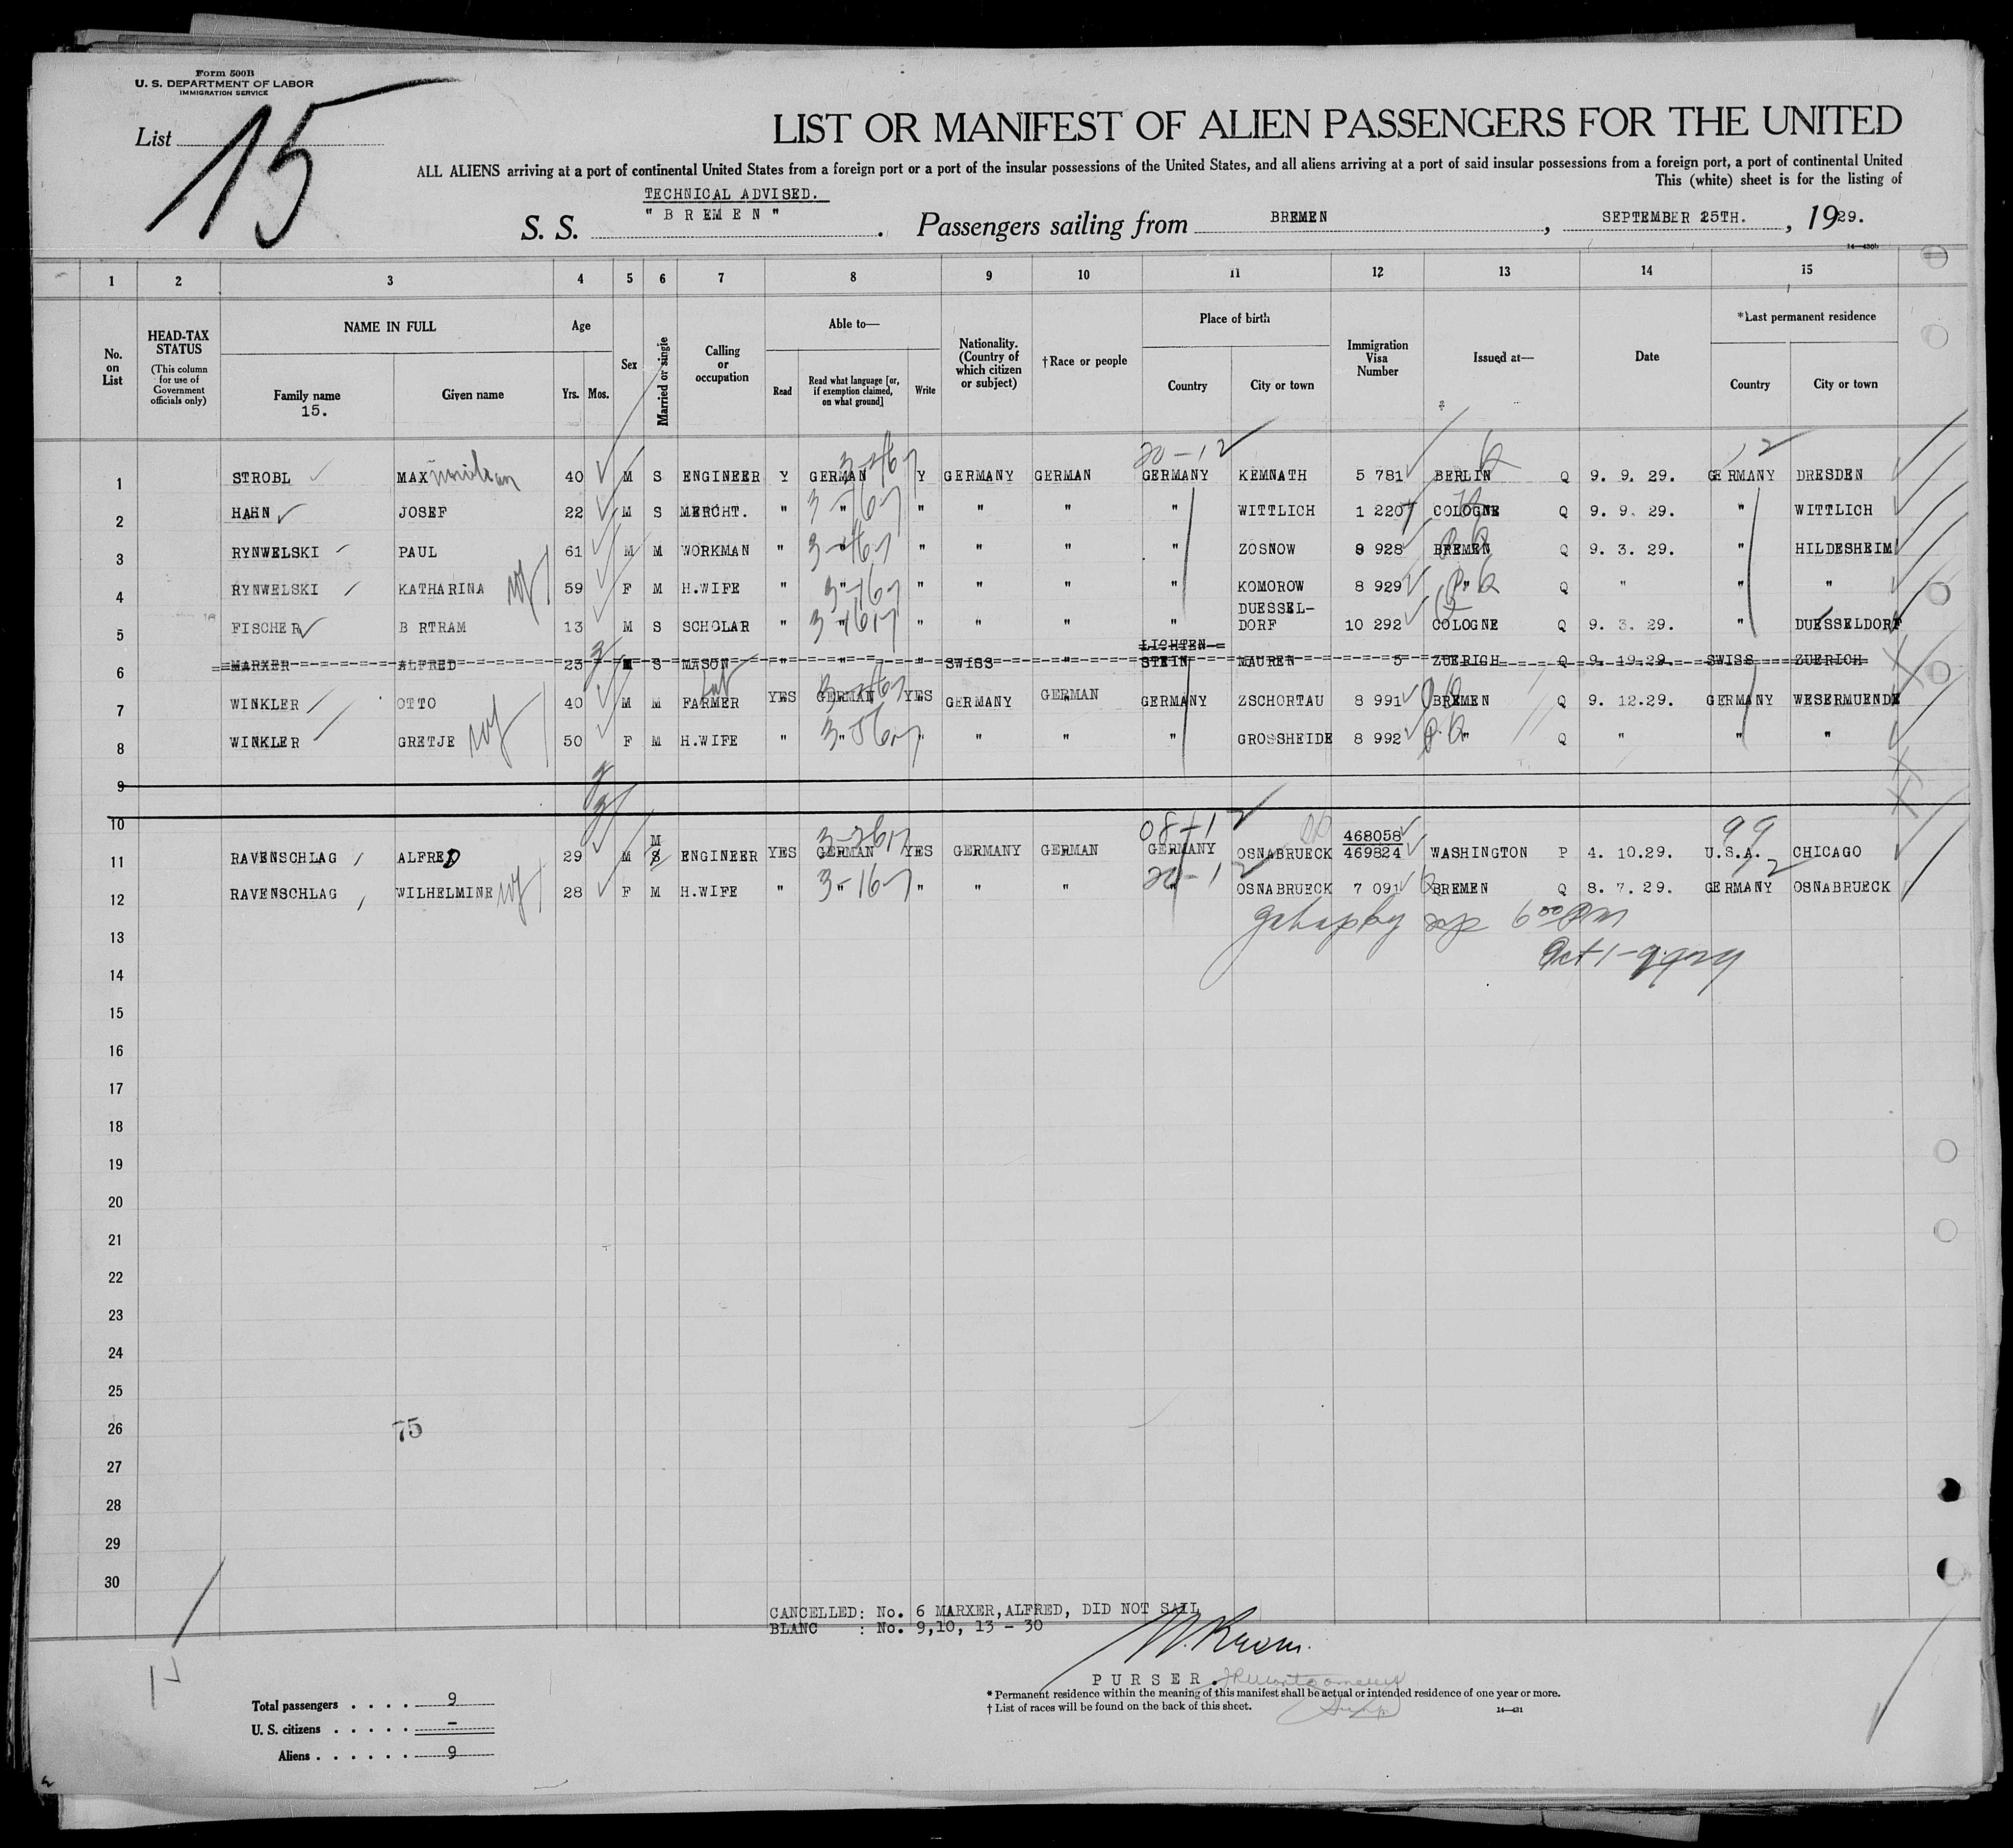 Form 500B
U. S. DEPARTMENT OF LABOR
IMMIGRATION SERVICE
List 15
LIST OR MANIFEST OF ALIEN PASSENGERS FOR THE UNITED
ALL ALIENS arriving at a port of continental United States from a foreign port or a port of the insular possessions of the United States, and all aliens arriving at a port of said insular possessions from a foreign port, a port of continental United
This (white) sheet is for the listing of
TECHNICAL ADVISED.
S. S. "BREMEN". Passengers sailing from BREMEN, SEPTEMBER 25TH., 1929.
14—430b
1 2 3 4 5 6 7 8 9 10 11 12 13 14 15
No. on List
HEAD-TAX STATUS (This column for use of Government officials only)
NAME IN FULL
Family name
15.
Given name
Age
Yrs. Mos.
Sex
Married or single
Calling or occupation
Able to—
Read
Read what language [or, if exemption claimed, on what ground]
Write
Nationality. (Country of which citizen or subject)
†Race or people
Place of birth
Country
City or town
Immigration Visa Number
Issued at—
Date
*Last permanent residence
Country
City or town
20-12
12
1 STROBL MAX 40 M S ENGINEER Y GERMAN Y GERMANY GERMAN GERMANY KEMNATH 5 781 BERLIN Q 9. 9. 29. GERMANY DRESDEN
2 HAHN JOSEF 22 M S MERCHT. " " " " " " WITTLICH 1 220 COLOGNE Q 9. 9. 29. " WITTLICH
3 RYNWELSKI PAUL 61 M M WORKMAN " " " " " " ZOSNOW 8 928 BREMEN Q 9. 3. 29. " HILDESHEIM
4 RYNWELSKI KATHARINA 59 F M H.WIFE " " " " " " KOMOROW 8 929 " Q " " "
5 FISCHER B RTRAM 13 M S SCHOLAR " " " " " " DUESSEL-DORF 10 292 COLOGNE Q 9. 3. 29. " DUESSELDORF
6 MARXER ALFRED 25 M S MASON " " " SWISS " LICHTEN-STEIN MAUREN 5 ZUERICH Q 9. 19.29. SWISS ZUERICH
7 WINKLER OTTO 40 M M FARMER YES GERMAN YES GERMANY GERMAN GERMANY ZSCHORTAU 8 991 BREMEN Q 9. 12.29. GERMANY WESERMUENDE
8 WINKLER GRETJE 50 F M H.WIFE " " " " " " GROSSHEIDE 8 992 " Q " " "
9
10
99
11 RAVENSCHLAG ALFRED 29 M M S ENGINEER YES GERMAN YES GERMANY GERMAN GERMANY OSNABRUECK 468058 469824 WASHINGTON P 4. 10.29. U.S.A. CHICAGO
12 RAVENSCHLAG WILHELMINE 28 F M H.WIFE " " " " " " OSNABRUECK 7 091 BREMEN Q 8. 7. 29. GERMANY OSNABRUECK
13
14
15
16
17
18
19
20
21
22
23
24
25
26
75
27
28
29
30
CANCELLED: No. 6 MARXER,ALFRED, DID NOT SAIL
BLANC : No. 9,10, 13 - 30
PURSER.
* Permanent residence within the meaning of this manifest shall be actual or intended residence of one year or more.
† List of races will be found on the back of this sheet.
14—431
Total passengers . . . . 9
U. S. citizens . . . . . —
Aliens . . . . . . 9